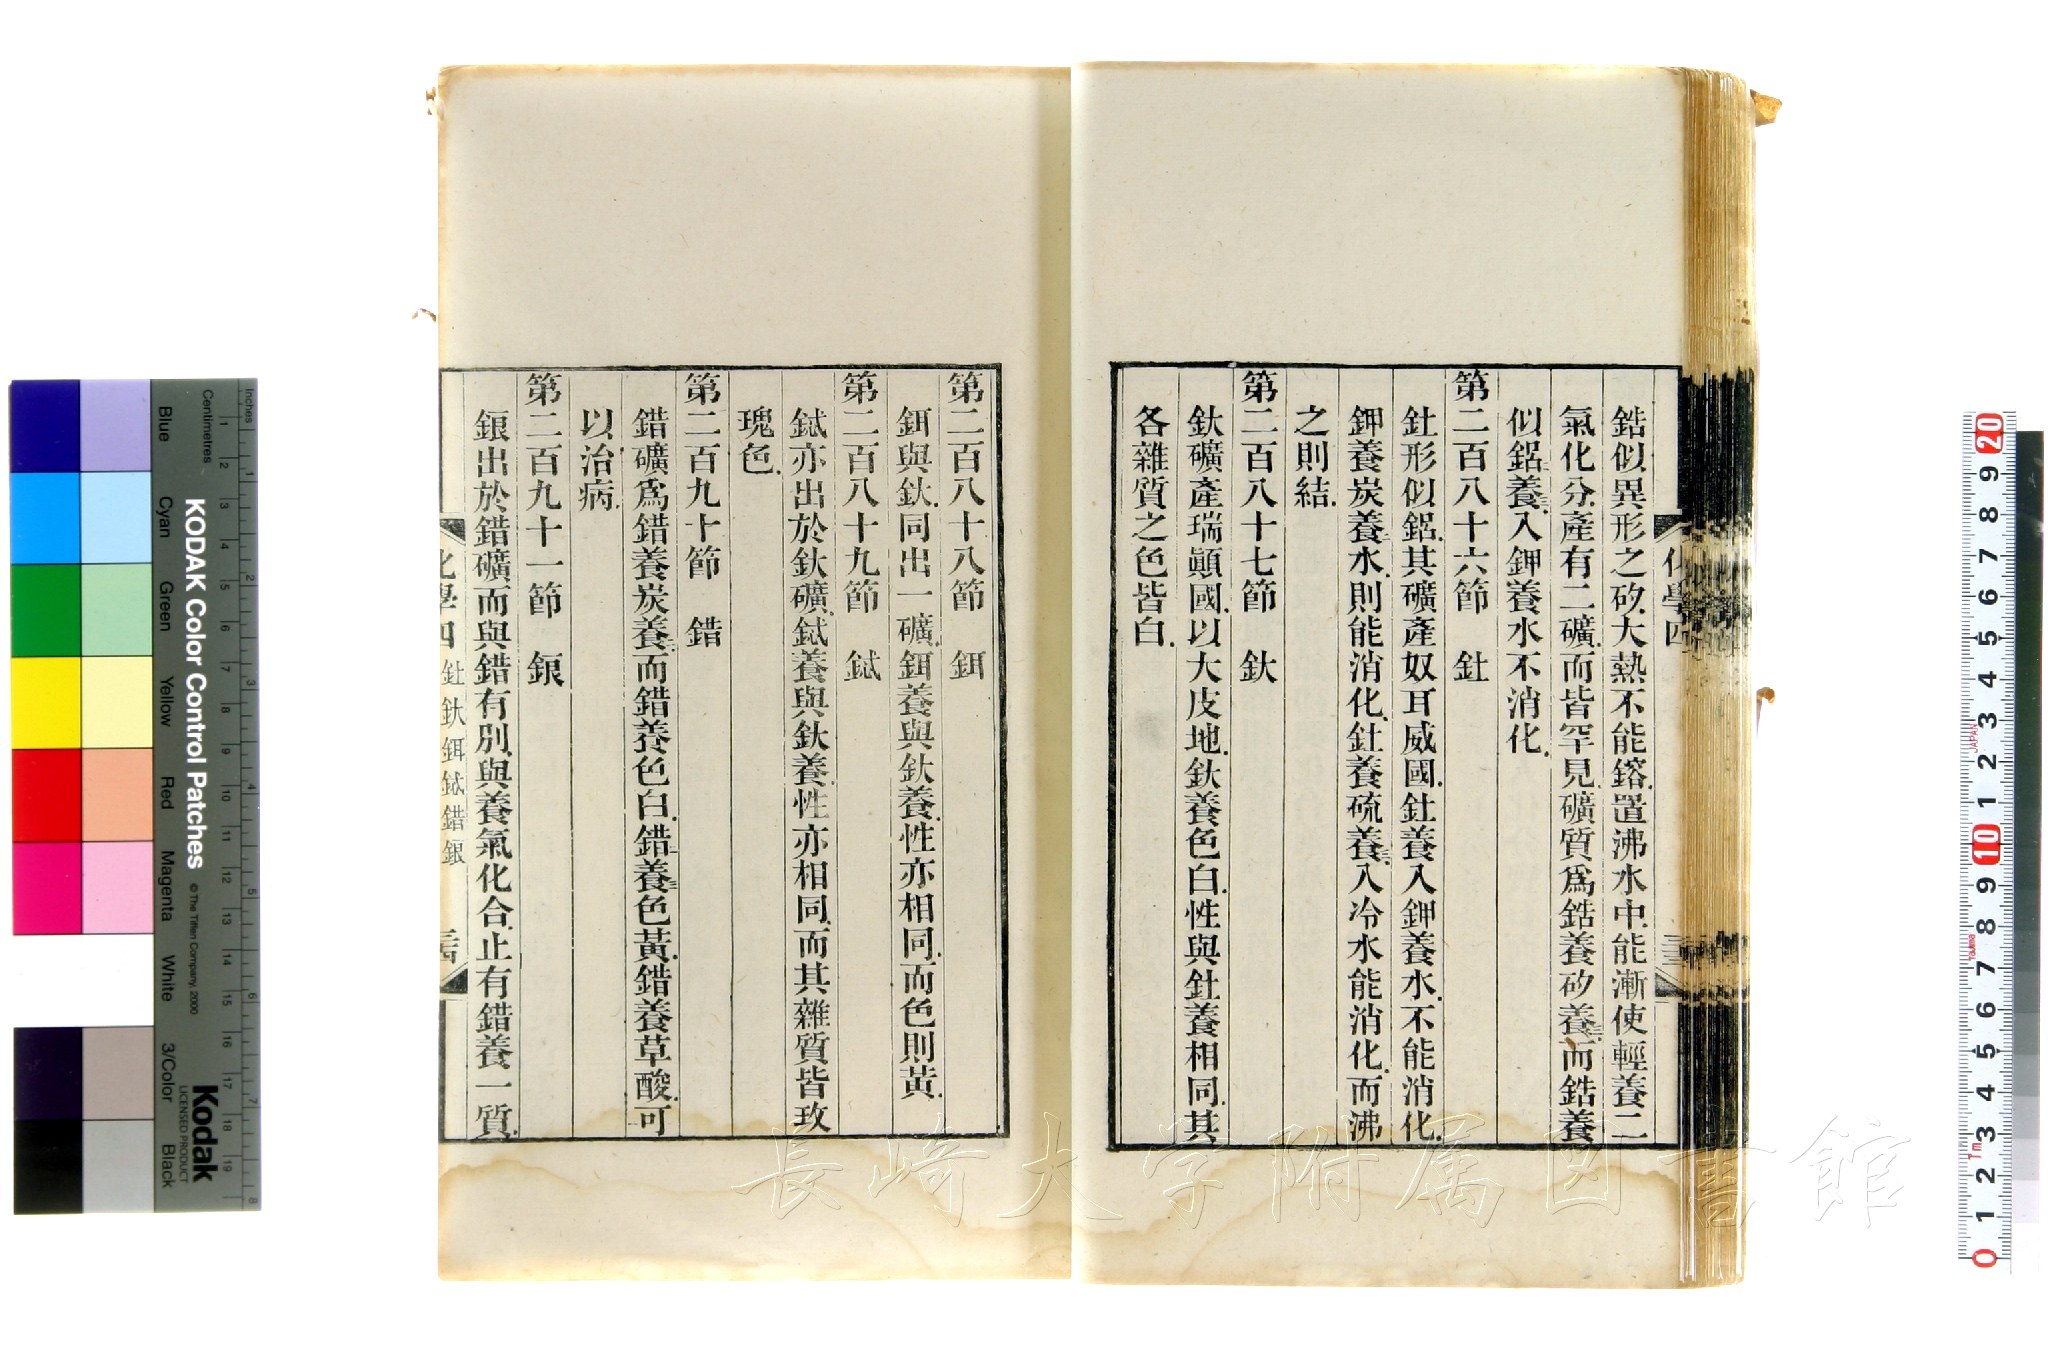 鋯似異形之矽.大熱不能鎔.置沸水中.能漸使輕養二
氣化分.產有二礦.而皆罕見.礦質爲鋯養矽養三.而鋯養
似鋁二養三.入鉀養水不消化.
第二百八十六節　釷
釷形似鋁.其礦產奴耳威國.釷養入鉀養水.不能消化.
鉀養炭養二水.則能消化.釷養硫養三.入冷水能消化.而沸
之則結.
第二百八十七節　釱
釱礦產瑞顚國.以大皮地.釱養色白.性與釷養相同.其
各雜質之色皆白.
化學四
第二百八十八節　鉺
鉺與釱.同出一礦.鉺養與釱養.性亦相同.而色則黃.
第二百八十九節　鋱
鋱亦出於釱礦.鋱養與釱養.性亦相同.而其雜質皆玫
瑰色.
第二百九十節　錯
錯礦爲錯養炭養二.而錯養色白.錯二養三色黃.錯養草酸.可
以治病.
第二百九十一節　鋃
鋃出於錯礦.而與錯有別.與養氣化合.止有錯養一質.
化學四　釷釱鉺鋱錯鋃
Inches
Centimetres
KODAK Color Control Patches
© The Tiffen Company, 2000
Kodak
LICENSED PRODUCT
Blue Cyan Green Yellow Red Magenta White 3/Color Black
長崎大学附属図書館
JAPAN